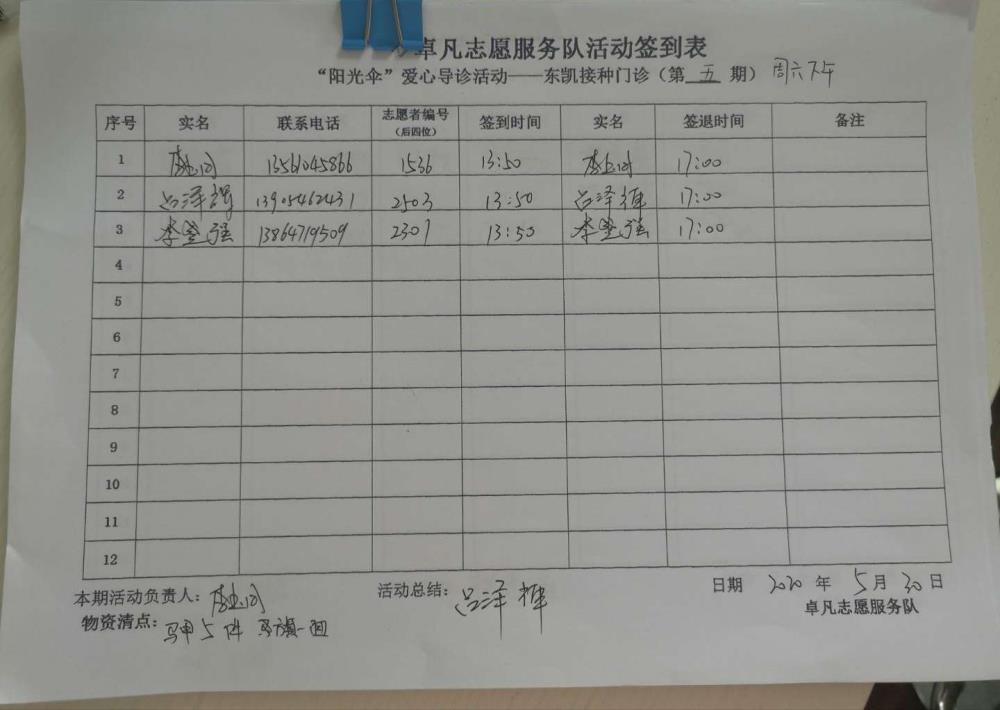 卓凡志愿服务队活动签到表
“阳光伞”爱心导诊活动——东凯接种门诊（第 五 期） 周六下午
序号 实名 联系电话 志愿者编号（后四位） 签到时间 实名 签退时间 备注
1 13561045866 1536 13:50 17:00
2 吕泽辉 13905462431 2503 13:50 吕泽辉 17:00
3 李登强 13864719509 2307 13:50 李登强 17:00
4
5
6
7
8
9
10
11
12
本期活动负责人： 活动总结：吕泽辉 日期 2020 年 5 月 30 日
物资清点：马甲5件 一面
卓凡志愿服务队